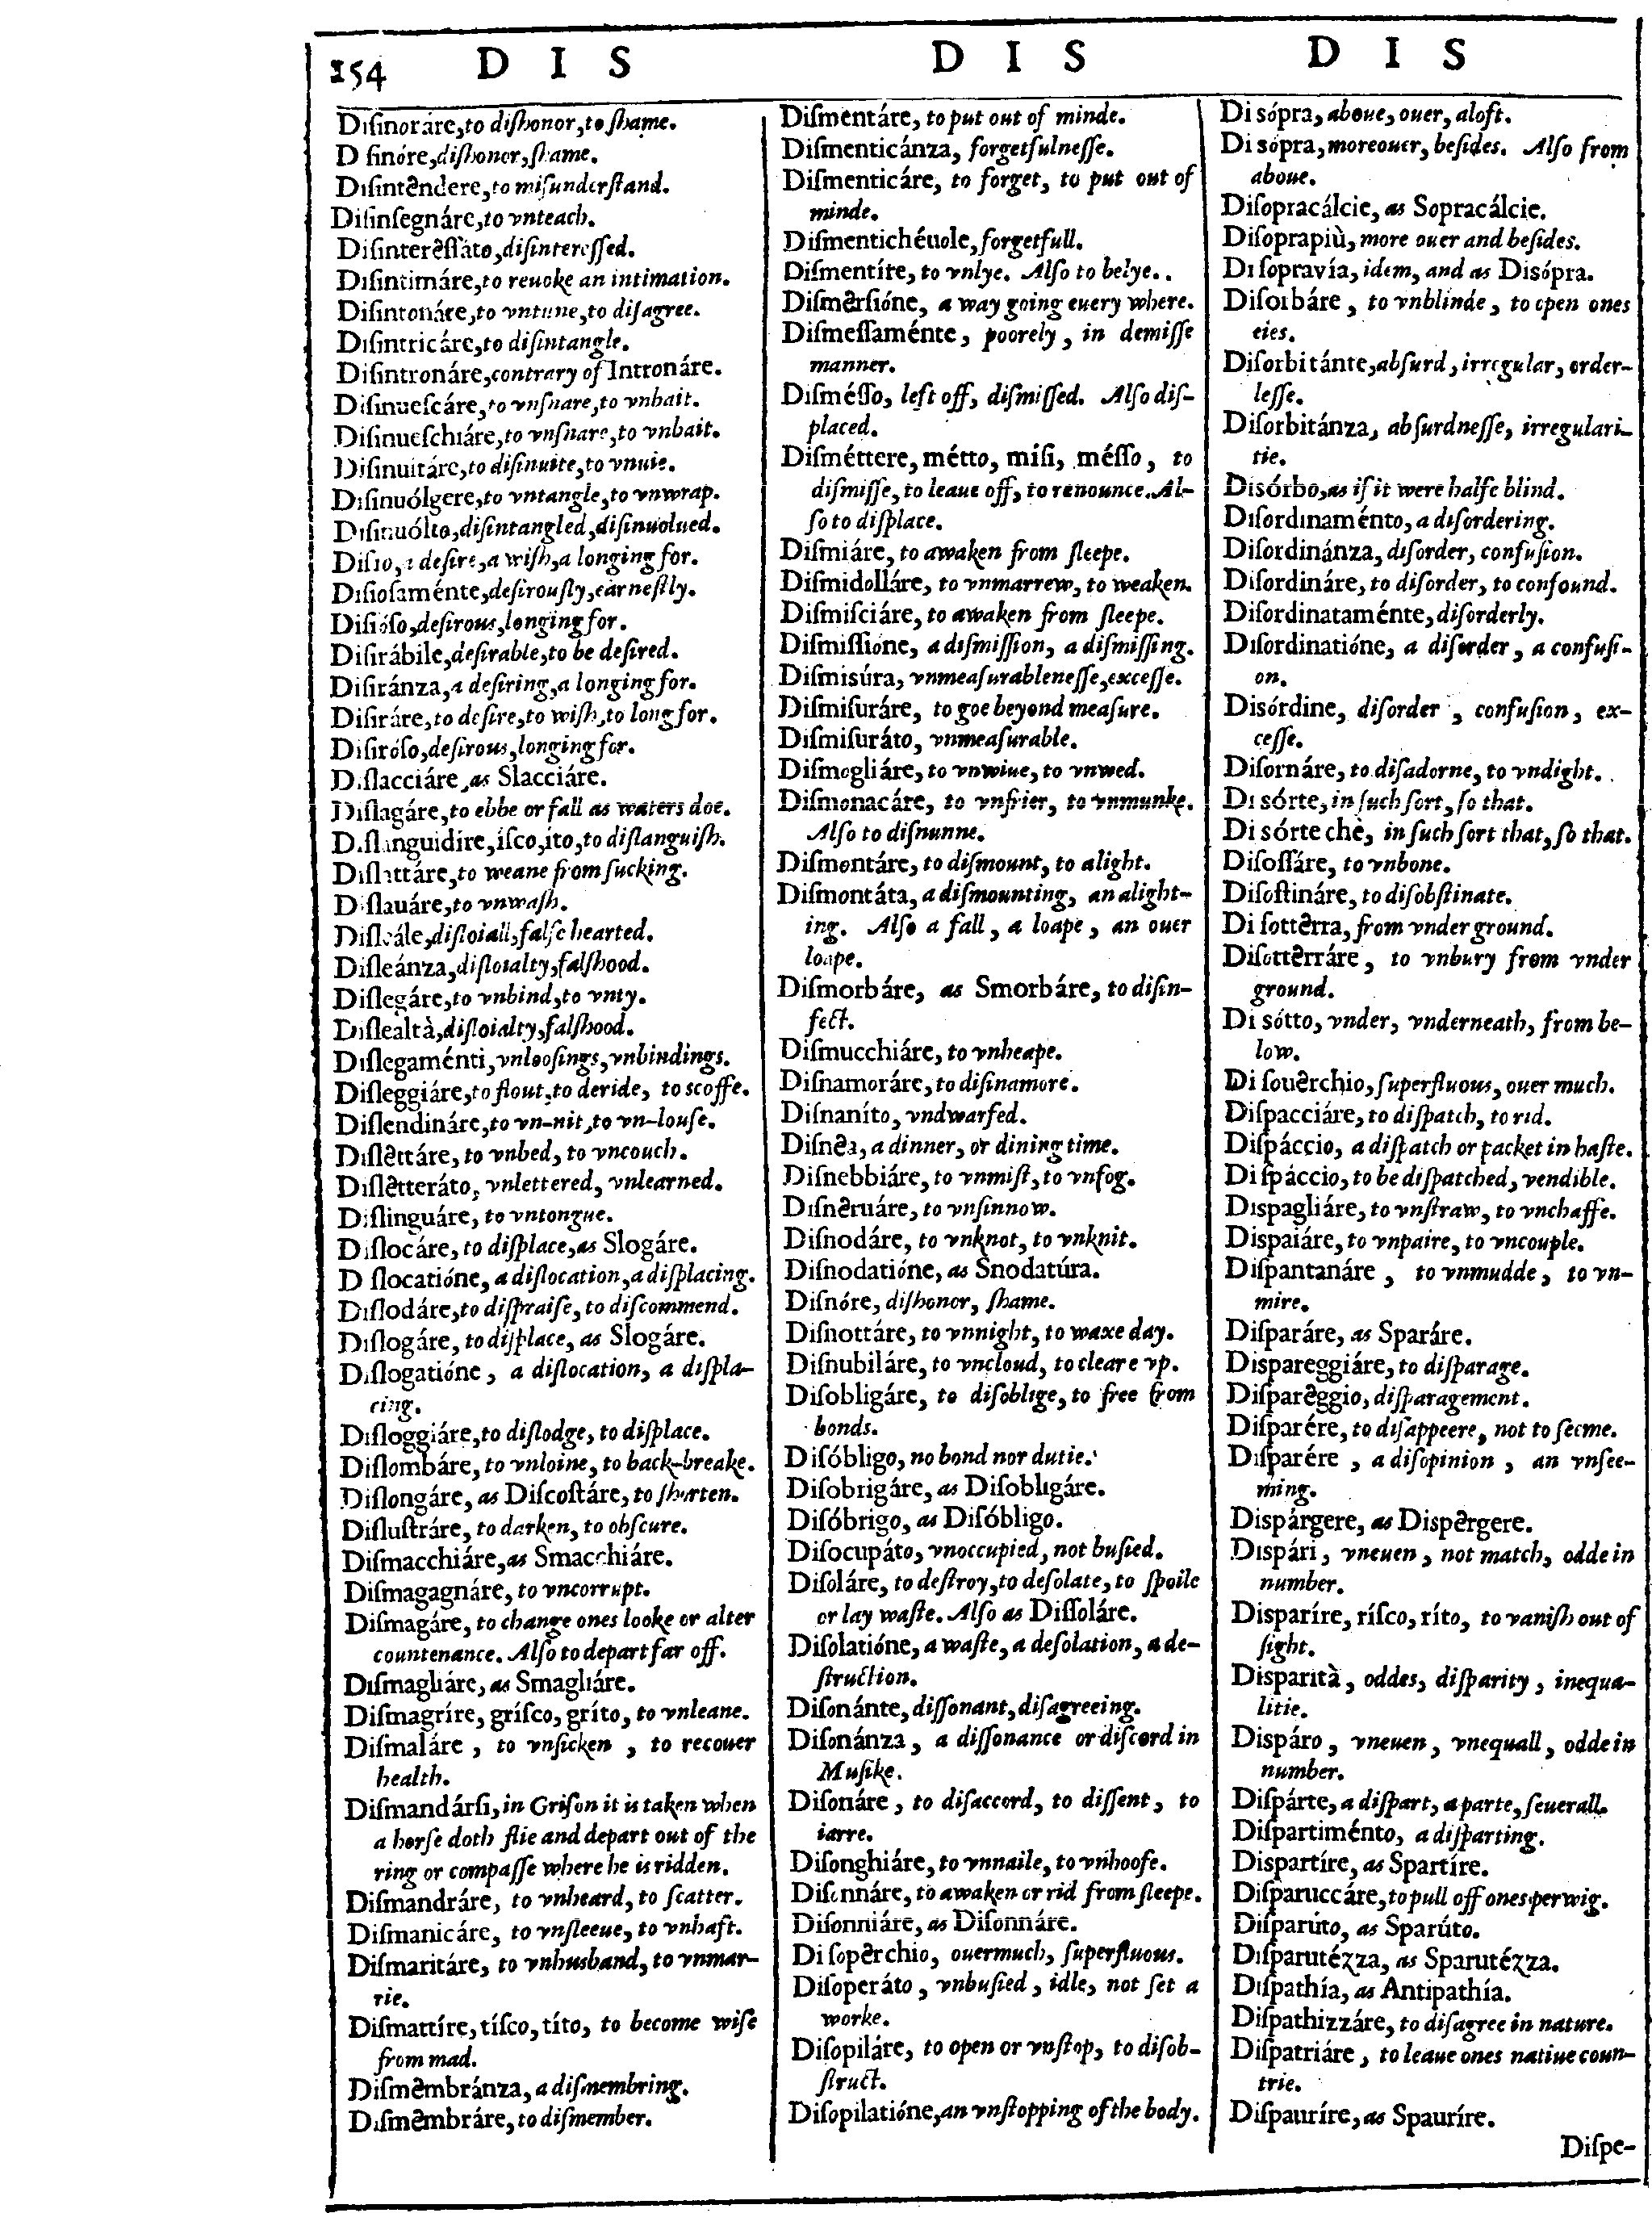 154 D I S D I S D I S
Diſinoráre, to diſhonor, to ſhame.
D ſinóre, diſhonor, ſhame.
Diſintêndere, to miſunderſtand.
Diſinſegnáre, to vnteach.
Diſinterêſſáto, diſintereſſed.
Diſintimáre, to reuoke an intimation.
Diſintonáre, to vntune, to diſagree.
Diſintricáre, to diſintangle.
Diſintronáre, contrary of Intronáre.
Diſinueſcáre, to vnſnare, to vnbait.
Diſinueſchiáre, to vnſnare, to vnbait.
Diſinuitáre, to diſinuite, to vnuie.
Diſinuólgere, to vntangle, to vnwrap.
Diſinuólto, diſintangled, diſinuolued.
Diſio, a deſire, a wiſh, a longing for.
Diſioſaménte, deſirouſly, earneſtly.
Diſióſo, deſirous, longing for.
Diſirábile, deſirable, to be deſired.
Diſiránza, a deſiring, a longing for.
Diſiráre, to deſire, to wiſh, to long for.
Diſiróſo, deſirous, longing for.
Diſlacciáre, as Slacciáre.
Diſlagáre, to ebbe or fall as waters doe.
Diſlanguidire, íſco, íto, to diſlanguiſh.
Diſlattáre, to weane from ſucking.
Diſlauáre, to vnwaſh.
Diſleále, diſloiall, falſe hearted.
Diſleánza, diſloialty, falſhood.
Diſlegáre, to vnbind, to vnty.
Diſlealtà, diſloialty, falſhood.
Diſlegaménti, vnlooſings, vnbindings.
Diſleggiáre, to flout, to deride, to scoffe.
Diſlendináre, to vn-nit, to vn-louſe.
Diſlêttáre, to vnbed, to vncouch.
Diſlêtteráto, vnlettered, vnlearned.
Diſlinguáre, to vntongue.
Diſlocáre, to diſplace, as Slogáre.
D ſlocatióne, a diſlocation, a diſplacing.
Diſlodáre, to diſpraiſe, to diſcommend.
Diſlogáre, to diſplace, as Slogáre.
Diſlogatióne, a diſlocation, a diſpla-
cing.
Diſloggiáre, to diſlodge, to diſplace.
Diſlombáre, to vnloine, to back-breake.
Diſlongáre, as Diſcoſtáre, to ſhorten.
Diſluſtráre, to darken, to obſcure.
Diſmacchiáre, as Smacchiáre.
Diſmagagnáre, to vncorrupt.
Diſmagáre, to change ones looke or alter
countenance. Alſo to depart far off.
Diſmagliáre, as Smagliáre.
Diſmagríre, gríſco, gríto, to vnleane.
Diſmaláre, to vnſicken, to recouer
health.
Diſmandárſi, in Griſon it is taken when
a horſe doth flie and depart out of the
ring or compaſſe where he is ridden.
Diſmandráre, to vnheard, to ſcatter.
Diſmanicáre, to vnſleeue, to vnhaft.
Diſmaritáre, to vnhusband, to vnmar-
rie.
Diſmattíre, tíſco, títo, to become wiſe
from mad.
Diſmêmbránza, a diſmembring.
Diſmêmbráre, to diſmember.
Diſmentáre, to put out of minde.
Diſmenticánza, forgetfulneſſe.
Diſmenticáre, to forget, to put out of
minde.
Diſmentichéuole, forgetfull.
Diſmentíre, to vnlye. Alſo to belye.
Diſmêrſióne, a way going euery where.
Diſmeſſaménte, poorely, in demiſſe
manner.
Diſméſſo, left off, diſmiſſed. Alſo diſ-
placed.
Diſméttere, métto, miſi, méſſo, to
diſmiſſe, to leaue off, to renounce. Al-
ſo to diſplace.
Diſmiáre, to awaken from ſleepe.
Diſmidolláre, to vnmarrew, to weaken.
Diſmiſciáre, to awaken from ſleepe.
Diſmiſſióne, a diſmiſſion, a diſmiſſing.
Diſmisúra, vnmeaſurableneſſe, exceſſe.
Diſmiſuráre, to goe beyond meaſure.
Diſmiſuráto, vnmeaſurable.
Diſmogliáre, to vnwiue, to vnwed.
Diſmonacáre, to vnfrier, to vnmunke.
Alſo to diſnunne.
Diſmontáre, to diſmount, to alight.
Diſmontáta, a diſmounting, an alight-
ing. Alſo a fall, a loape, an ouer
loape.
Diſmorbáre, as Smorbáre, to diſin-
fect.
Diſmucchiáre, to vnheape.
Diſnamoráre, to diſinamore.
Diſnaníto, vndwarfed.
Diſnêa, a dinner, or dining time.
Diſnebbiáre, to vnmiſt, to vnfog.
Diſnêruáre, to vnſinnow.
Diſnodáre, to vnknot, to vnknit.
Diſnodatióne, as Snodatúra.
Diſnóre, diſhonor, ſhame.
Diſnottáre, to vnnight, to waxe day.
Diſnubiláre, to vncloud, to cleare vp.
Diſobligáre, to diſoblige, to free from
bonds.
Diſóbligo, no bond nor dutie.
Diſobrigáre, as Diſobligáre.
Diſóbrigo, as Diſóbligo.
Diſocupáto, vnoccupied, not buſied.
Diſoláre, to deſtroy, to deſolate, to ſpoile
or lay waſte. Alſo as Diſſoláre.
Diſolatióne, a waſte, a deſolation, a de-
ſtruction.
Diſonánte, diſſonant, diſagreeing.
Diſonánza, a diſſonance or diſcord in
Muſike.
Diſonáre, to diſaccord, to diſſent, to
iarre.
Diſonghiáre, to vnnaile, to vnhoofe.
Diſonnáre, to awaken or rid from ſleepe.
Diſonniáre, as Diſonnáre.
Di ſopêrchio, ouermuch, ſuperfluous.
Diſoperáto, vnbuſied, idle, not ſet a
worke.
Diſopiláre, to open or vnſtop, to diſob-
ſtruct.
Diſopilatióne, an vnſtopping of the body.
Di sópra, aboue, ouer, aloft.
Di sópra, moreouer, beſides. Alſo from
aboue.
Diſopracálcie, as Sopracálcie.
Diſoprapiù, more ouer and beſides.
Di ſopravía, idem, and as Disópra.
Diſorbáre, to vnblinde, to open ones
eies.
Diſorbitánte, abſurd, irregular, order-
leſſe.
Diſorbitánza, abſurdneſſe, irregulari-
tie.
Disórbo, as if it were halfe blind.
Diſordinaménto, a diſordering.
Diſordinánza, diſorder, confuſion.
Diſordináre, to diſorder, to confound.
Diſordinataménte, diſorderly.
Diſordinatióne, a diſorder, a confuſi-
on.
Disórdine, diſorder, confuſion, ex-
ceſſe.
Diſornáre, to diſadorne, to vndight.
Di sórte, in ſuch ſort, ſo that.
Di sórte chè, in ſuch ſort that, ſo that.
Diſoſſáre, to vnbone.
Diſoſtináre, to diſobſtinate.
Di ſottêrra, from vnder ground.
Diſottêrráre, to vnbury from vnder
ground.
Di sótto, vnder, vnderneath, from be-
low.
Di ſouêrchio, ſuperfluous, ouer much.
Diſpacciáre, to diſpatch, to rid.
Diſpáccio, a diſpatch or packet in haſte.
Di ſpáccio, to be diſpatched, vendible.
Dispagliáre, to vnſtraw, to vnchaffe.
Dispaiáre, to vnpaire, to vncouple.
Diſpantanáre, to vnmudde, to vn-
mire.
Diſparáre, as Sparáre.
Dispareggiáre, to diſparage.
Diſparêggio, diſparagement.
Diſparére, to diſappeere, not to ſeeme.
Diſparére, a diſopinion, an vnſee-
ming.
Dispárgere, as Dispêrgere.
Dispári, vneuen, not match, odde in
number.
Disparíre, ríſco, ríto, to vaniſh out of
ſight.
Disparità, oddes, diſparity, inequa-
litie.
Dispáro, vneuen, vnequall, odde in
number.
Diſpárte, a diſpart, aparte, ſeuerall.
Diſpartiménto, a diſparting.
Dispartíre, as Spartíre.
Diſparuccáre, to pull off ones perwig.
Diſparúto, as Sparúto.
Diſparutézza, as Sparutézza.
Diſpathía, as Antipathía.
Diſpathizzáre, to diſagree in nature.
Diſpatriáre, to leaue ones natiue coun-
trie.
Diſpauríre, as Spauríre.
Diſpe-